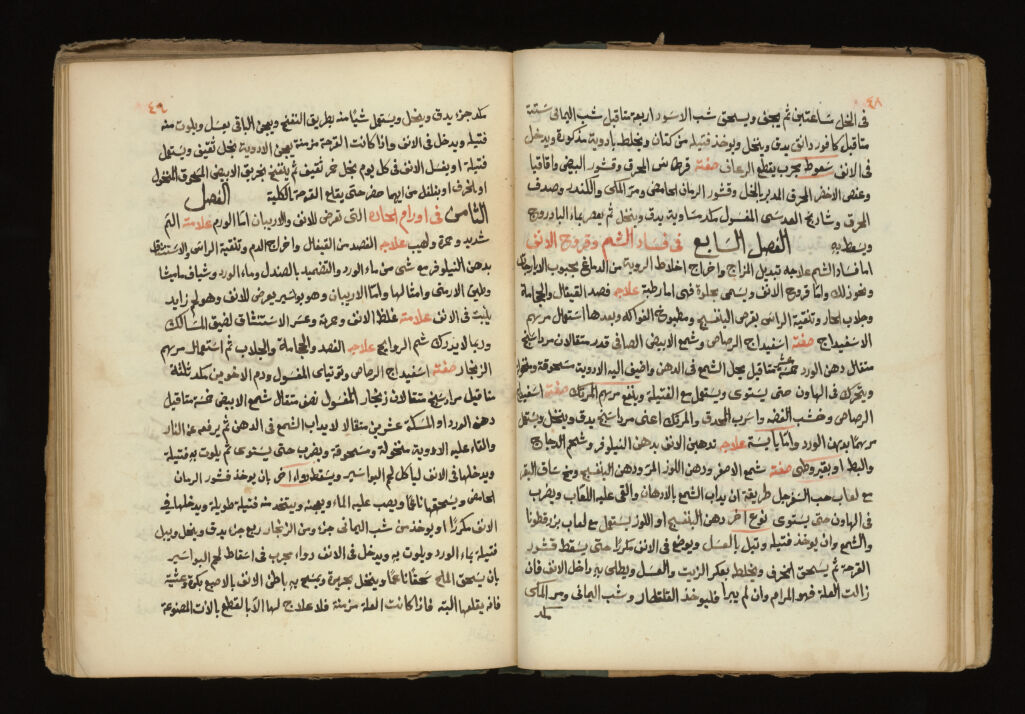 ٤٨
فى الخل ساعتين ثم يجفى ويسحق شب الاسود اربعة مثاقيل شب اليمانى ستة
مثاقيل كافور دانق يدق وينخل ويوخذ فتيلة من كتان ويخلط بادوية مذكورة ويدخل
فى الانف سعوط مجرب يقطع الرعاف صفته قرطاس المحرق وقشور البيض واقاقيا
وعفص الاخضر المحرق المدبر بالخل وقشور الرمان الحامض ومر المكى والكندر وصدف
المحرق وشاذنج العدسى المغسول مكد مساوية يدق وينخل ثم يعصر بماء البادروج
ويسعط به الفصل السابع فى فساد الشم وقروح الانف
اما فساد الشم علاجه تبديل المزاج واخراج اخلاط الروية من الدماغ بحبوب الايارجات
ونحو ذلك واما قروح الانف ويسمى بجلوة فهى اما رطبة علاجه فصد القيفال والحجامة
وجلاب الحار وتنقية الراس بقرص البنفسج ومطبوخ الفواكه وبعدها استعمال مرهم
الاسفيداج صفته اسفيداج الرصاص وشمع الابيض الصافى قدر مثقالان مرداسنج
مثقال دهن الورد خمسة مثاقيل يحل الشمع فى الدهن واضيف اليه الادوية مسحوقة ومنخولة
ويتحرك فى الهاون حتى يستوى ويستعمل مع الفتيلة وينفع مرهم المرتك صفته اسفيداج
الرصاص وخشب الفضه واسرب المحرق والمرتك اعنى مرداسنج يدق وينخل ويستعمل
مرهما بدهن الورد واما يابسة علاجه تدهين الانف بدهن النيلوفر وشحم الدجاج
والبط او بقيروطى صفته شمع الاصفر ودهن اللوز المر ودهن البنفسج ومخ ساق البقر
مع لعاب حب السفرجل طريقة ان يذاب الشمع بالادهان والقى عليه اللعاب ويضرب
فى الهاون حتى يستوى نوع آخر دهن البنفسج او اللوز يستعمل مع لعاب بزرقطونا
والشمع وان يوخذ فتيلة وتبل بالعسل ويوضع فى الانف مكررا حتى يسقط قشور
القرحة ثم يسحق الخزف ويخلط بعكر الزيت والعسل ويطلى به داخل الانف فان
زالت العلة فهو المرام وان لم يبرا فليوخذ القلقطار وشب اليمانى ومر المكى
مكد
٤٩
مكد جزء يدق وينخل ويستعمل شيئا منه بطريق النفخ ويعجن الباقى بعسل ويلوت منه
فتيلة ويدخل فى الانف واذا كانت القرحة مزمنة يعجن الادوية بخل ثقيف ويستعمل
فتيلة او يغسل الانف فى كل يوم بخل خمر ثقيف ثم ينفخ بخربق الابيض المسحوق المنخول
او بالحرف او بفلفل من ايهما حضر حتى يقلع القرحة بالكلية الفصل
الثامن فى اورام الحادة التى تعرض للانف والاربيان اما الورم علامته الم
شديد وحمرة ولهب علاجه الفصد من القيفال واخراج الدم وتنقية الراس والاستنشاق
بدهن النيلوفر مع شئ من ماء الورد والتضميد بالصندل وماء الورد وشياف ماميثا
وطين الارمنى وامثالها واما الاربيان وهو بواسير يعرض للانف وهو لحم زايد
ينبت فى الانف علامته غلظ الانف وحمرته وعسر الاستنشاق لضيق المسالك
وربما لا يدرك شم الروايح علاجه الفصد والحجامة والجلاب ثم استعمال مرهم
الزنجار صفته اسفيداج الرصاص وتوتياى المغسول ودم الاخوين مكد ثلثة
مثاقيل مرداسنج مثقالان زنجار المغسول نصف مثقال شمع الابيض خمسة مثاقيل
دهن الورد او المسكة عشرين مثقالا لا يذاب الشمع فى الدهن ثم يرفعه عن النار
والقاء عليه الادوية منخولة ومسحوقة ويضرب حتى يستوى ثم يلوت به فتيلة
ويدخلها فى الانف لياكل لحم البواسير ويسقط دواء آخر بان يوخذ قشور الرمان
الحامض ويسحقها ناعما ويصب عليه الماء ويعجنه ويتخذ منه فتيلة طويلة ويدخلها فى
الانف مكررا او يوخذ من شب اليمانى جزء ومن الزنجار ربع جزء يدق وينخل ويبل
فتيلة بماء الورد ويلوت به ويدخل فى الانف دواء مجرب فى اسقاط لحم البواسير
بان يسحق الملح سحقا ناعما وينخل بحريرة ويمسح به باطن الانف بالاصبع بكرة وعشية
فانه يقلعها البته فاذا كانت العلة مزمنة فلا علاج لها الا بالقطع بالالات المصنوعة